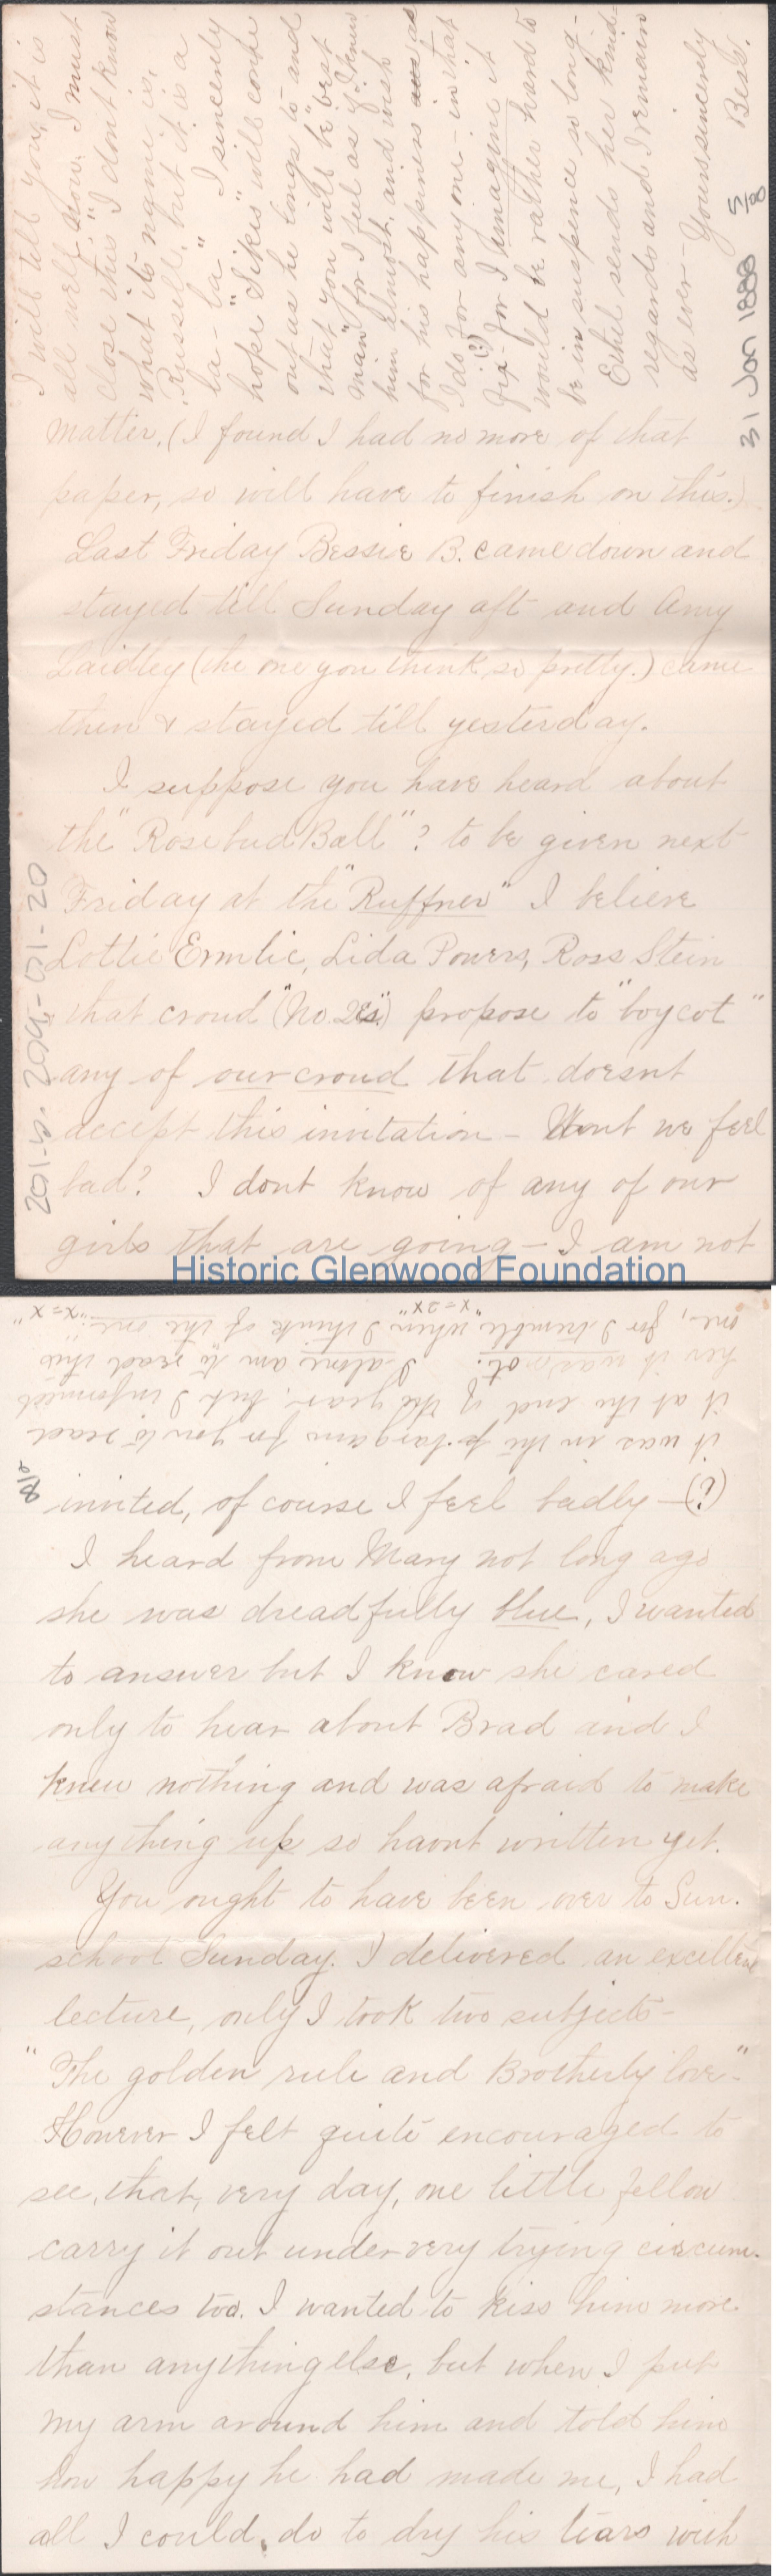 matter. (I found I had no more of that
paper, so will have to finish on this.)
Last Friday Bessie B. came down and
stayed till Sunday aft and Amy
Laidley (the one you think so pretty.) came
then & stayed till yesterday.
I suppose you have heard about
the "Rosebud Ball"? to be given next
Friday at the "Ruffner" I believe
Lottie Ermlic, Lida Powers, Ross Stein
that croud ("No. 2es") propose to "boycot"
any of our croud that doesnt
accept this invitation - Wont we feel
bad? I dont know of any of our
girls that are going - I am not
I will tell you, it is
all well now. I must
close this, I dont know
what its name is,
"Russell" but it is a
la-la" I sincerely
hope "Sikes" will come
out as he longs to and
that you will be "best
man" for I feel as if I knew
him almost, and wish
for his happiness as
I do for any one - in that
fix - (?) for I imagine it
would be rather hard to
be in suspence so long -
Ethel sends her kind
regards and I remain
as ever - Yours sincerely
Bess.
31 Jan 1888
5/8
201-5. 204-G1-20
Historic Glenwood Foundation
invited, of course I feel badly - (?)
I heard from Mary not long ago
she was dreadfully blue, I wanted
to answer but I know she cared
only to hear about Brad and I
knew nothing and was afraid to make
anything up so havnt written yet.
You ought to have been over to Sun.
school Sunday. I delivered an excellent
lecture, only I took two subjects -
"The golden rule and Brotherly love" -
However I felt quite encouraged to
see, that, very day, one little fellow
carry it out under very trying circum-
stances too. I wanted to kiss him more
than anything else, but when I put
my arm around him and told him
how happy he had made me, I had
all I could do to dry his tears with
it was in the bargain for you to read
it at the end of the year, but I informed
her it was not. I alone am to read this
one, for I tremble "when I think of the one"
"x=2x" "x=x"